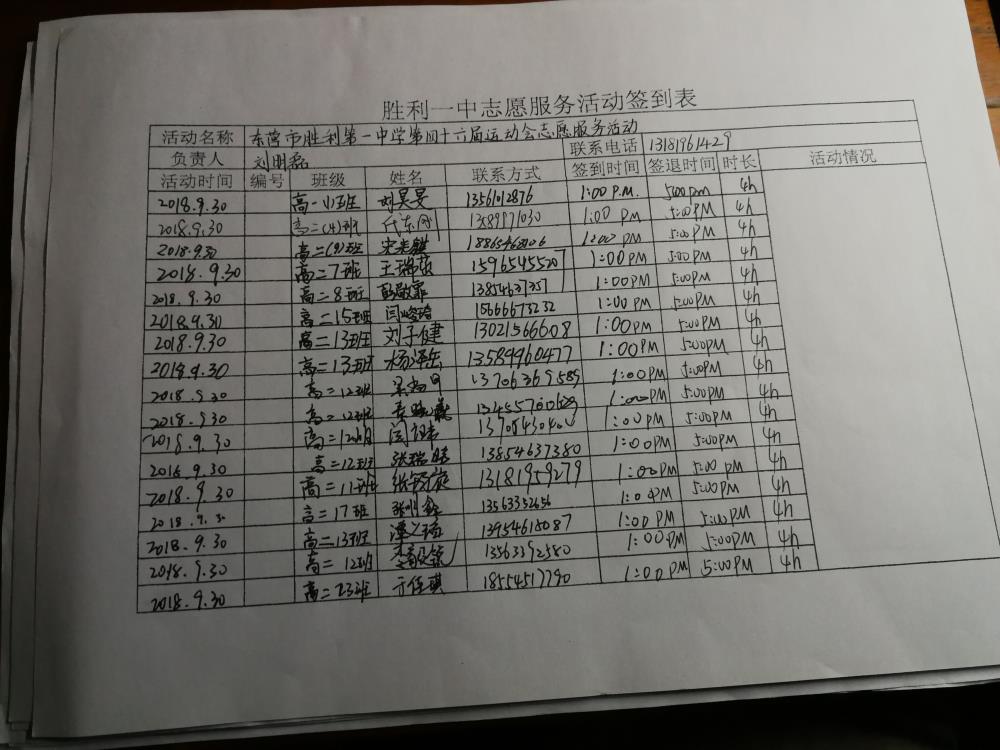 胜利一中志愿服务活动签到表
活动名称 东营市胜利第一中学第四十六届运动会志愿服务活动
负责人 刘明磊 联系电话 13181961429
活动时间 编号 班级 姓名 联系方式 签到时间 签退时间 时长 活动情况
2018.9.30 高一 班 刘昊旻 13561012876 1:00 P.M. 5:00 pm 4h
2018.9.30 高二(4)班 代东 13589971030 1:00 PM 5:00PM 4h
2018.9.30 高二(9)班 1:00 PM 5:00 PM 4h
2018.9.30 高二7班 15965455207 1:00PM 5:00PM 4h
2018.9.30 高二8班 13854637357 1:00PM 5:00PM 4h
2018.9.30 高二15班 15666673232 1:00 PM 5:00PM 4h
2018.9.30 高二13班 刘子健 13021566608 1:00PM 5:00PM 4h
2018.9.30 高二13班 13589960477 1:00PM 5:00PM 4h
2018.9.30 高二12班 13706369589 1:00PM 5:00PM 4h
2018.9.30 高二12班 1:00PM 5:00PM 4h
2018.9.30 高二 1:00 PM 5:00PM 4h
2018.9.30 高二12班 13854637380 1:00PM 5:00PM 4h
2018.9.30 高二11班 13181959279 1:00PM 5:00 PM 4h
2018.9.30 高二17班 13563352656 1:00PM 5:00PM 4h
2018.9.30 高二13班 13954615087 1:00 PM 5:00PM 4h
2018.9.30 高二 12班 13563392580 1:00PM 5:00PM 4h
2018.9.30 高二23班 于佳琪 18554517790 1:00PM 5:00PM 4h